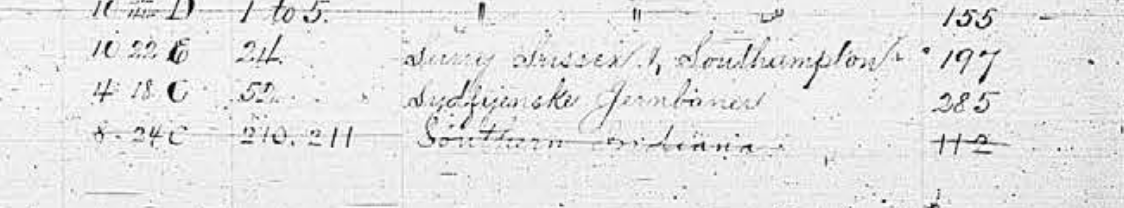 10 D 1 to 5. " " " 155
10 22 E 24. Surry Sussex & Southampton 197
4 18 C 52. Sydfyenske Jernbaner 285
8. 24 C 210. 211 Southern Indiana 112